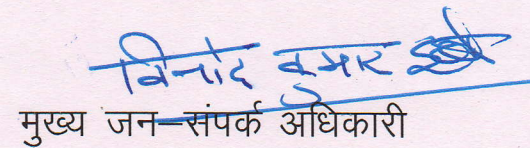 विनोद कुमार
मुख्य जन–संपर्क अधिकारी